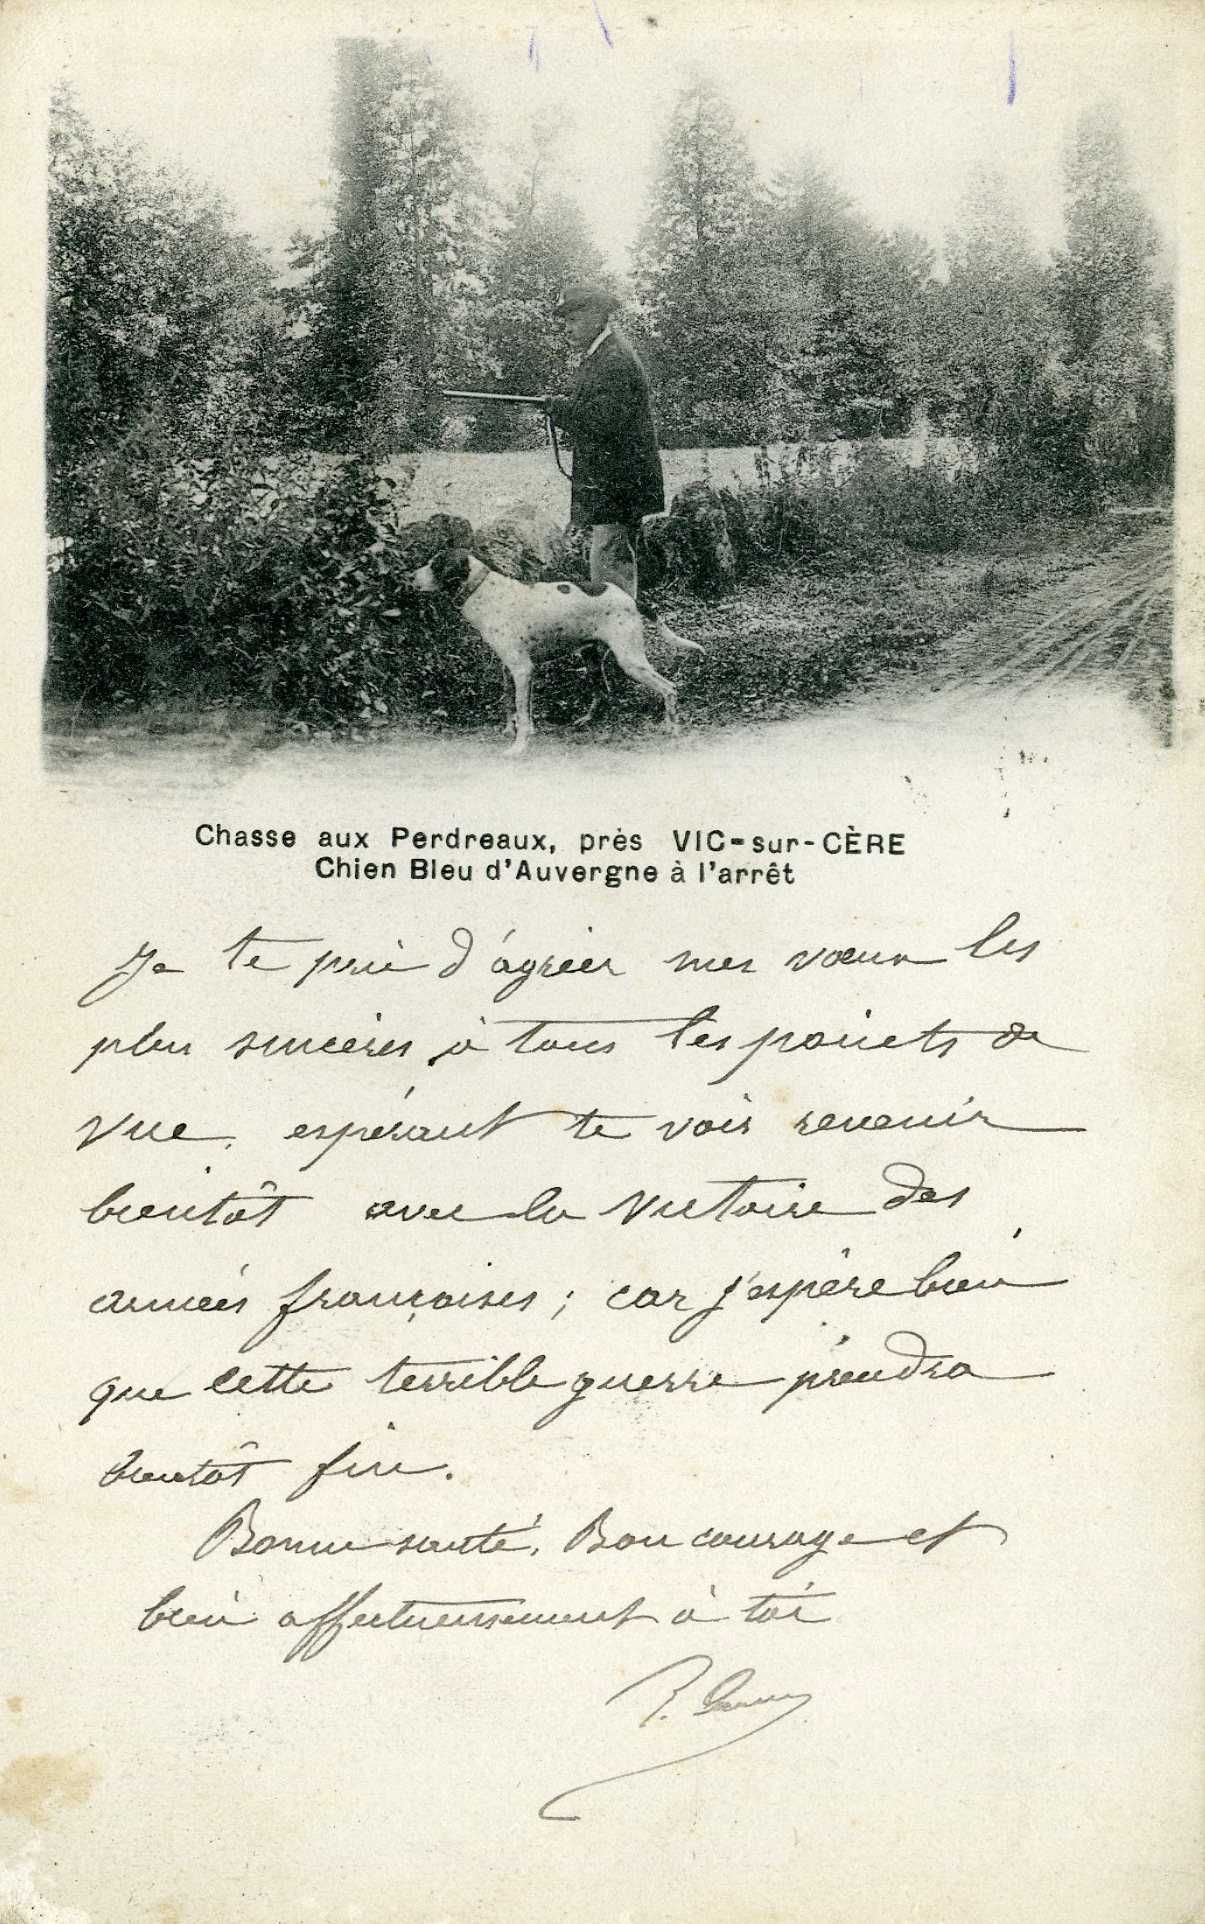 Chasse aux Perdreaux, près VIC-sur-CÈRE
Chien Bleu d'Auvergne à l'arrêt
Je te prie d'agréer mes vœux les
plus sincères à tous les points de
vue, espérant te voir revenir
bientôt avec la victoire des
armées françaises ; car j'espère bien
que cette terrible guerre prendra
bientôt fin.
Bonne santé. Bon courage et
bien affectueusement à toi